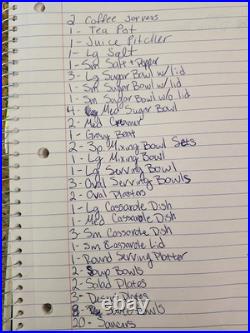 2 Coffee servers
1- Tea Pot
1- Juice Pitcher
1- Lg Salt
1- Sm Salt + Pepper
3- Lg Sugar Bowl w/lid
1- Sm Sugar Bowl w/lid
1- Sm Sugar Bowl w/o lid
4- Med Sugar Bowl
2- Med Creamer
1- Gravy Boat
2- 3p. Mixing Bowl Sets
1- Lg Mixing Bowl
1- Lg Serving Bowl
3- Oval Serving Bowls
2- Oval Platters
1- Lg Casserole Dish
1- Med Casserole Dish
3- Sm Casserole Dish
1- Sm Casserole Lid
1- Round Serving Platter
2- Soup Bowls
2- Salad Plates
3- Plates
8- Bowls
20- Saucers